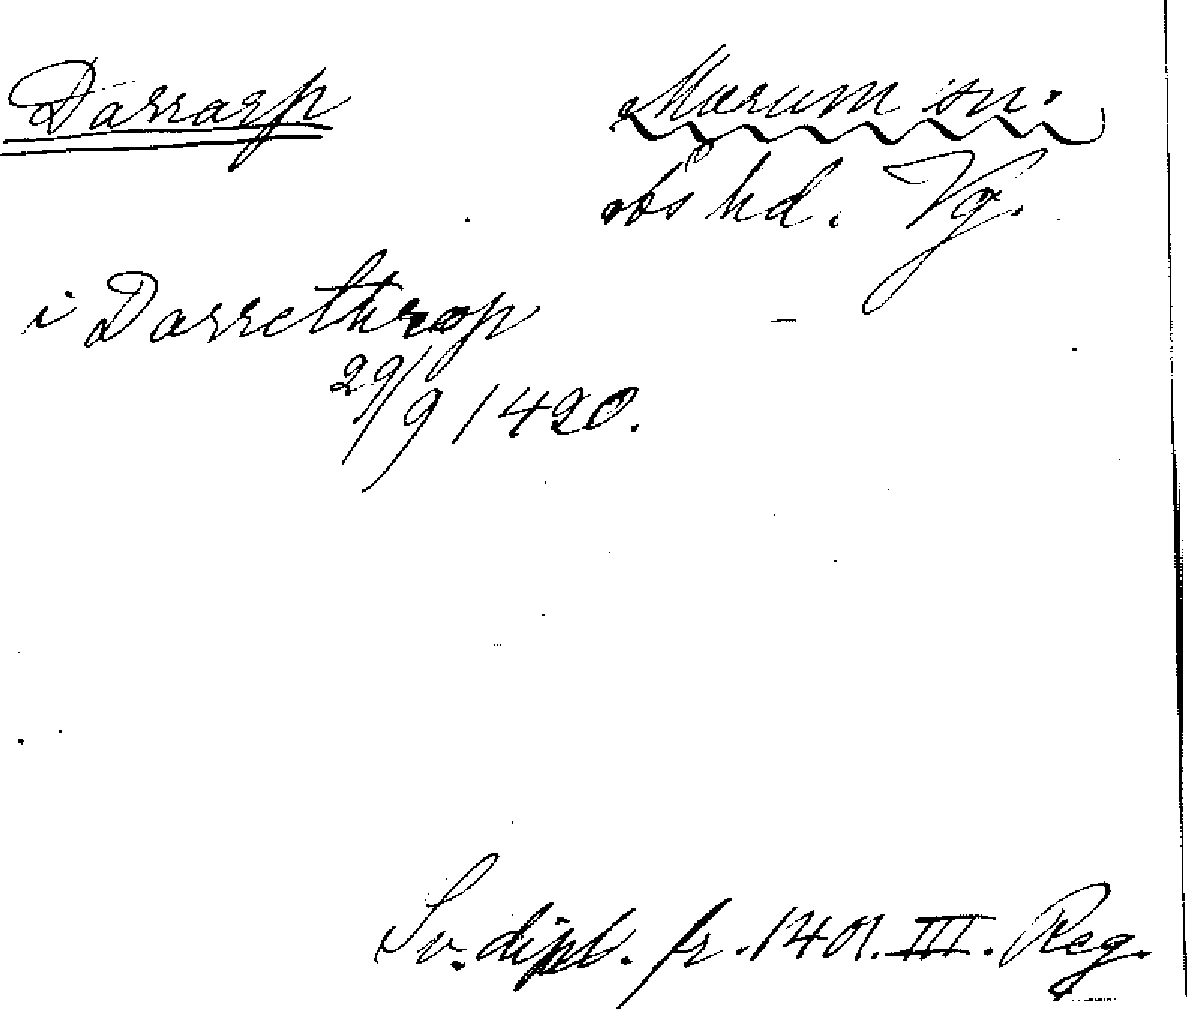 Darrarp Murum sn.
Ås hd. Vg.
i Darrethrop
29/9 1420.
Sv. dipl. fr. 1401. III. Reg.